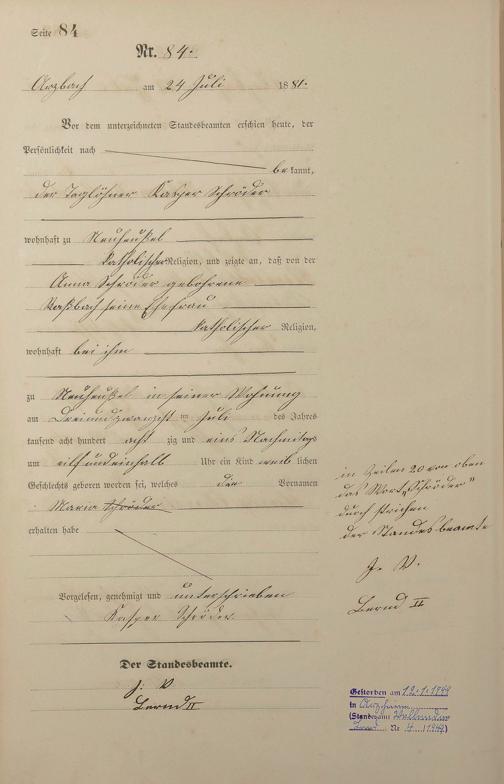 Seite 84
Nr. 84.
Arzbach am 24 Juli 1881.
Vor dem unterzeichneten Standesbeamten erschien heute, der
Persönlichkeit nach
bekannt,
der Taglöhner Kasper Schröder
wohnhaft zu Neuheusel
katholischer Religion, und zeigte an, daß von der
Anna Schröder gebohrene
seine Ehefrau
katholischer Religion,
wohnhaft bei ihm
zu Neuheusel in seiner Wohnung
am Dreiundzwanzigst ten Juli des Jahres
tausend acht hundert acht zig und eins Nachmittags
um eilf und einhalb Uhr ein Kind weib lichen
Geschlechts geboren worden sei, welches den Vornamen
Maria Schröder
erhalten habe
Vorgelesen, genehmigt und unterschrieben
Kasper Schröder
Der Standesbeamte.
J. V.
Bernd II
in Zeilen 20 von oben
das Wort „Schröder"
durch strichen
der Standesbeamte
J. V.
Bernd II
Gestorben am 12.1.1949
in Arzheim
(Standesamt
Nr 4 /1949)